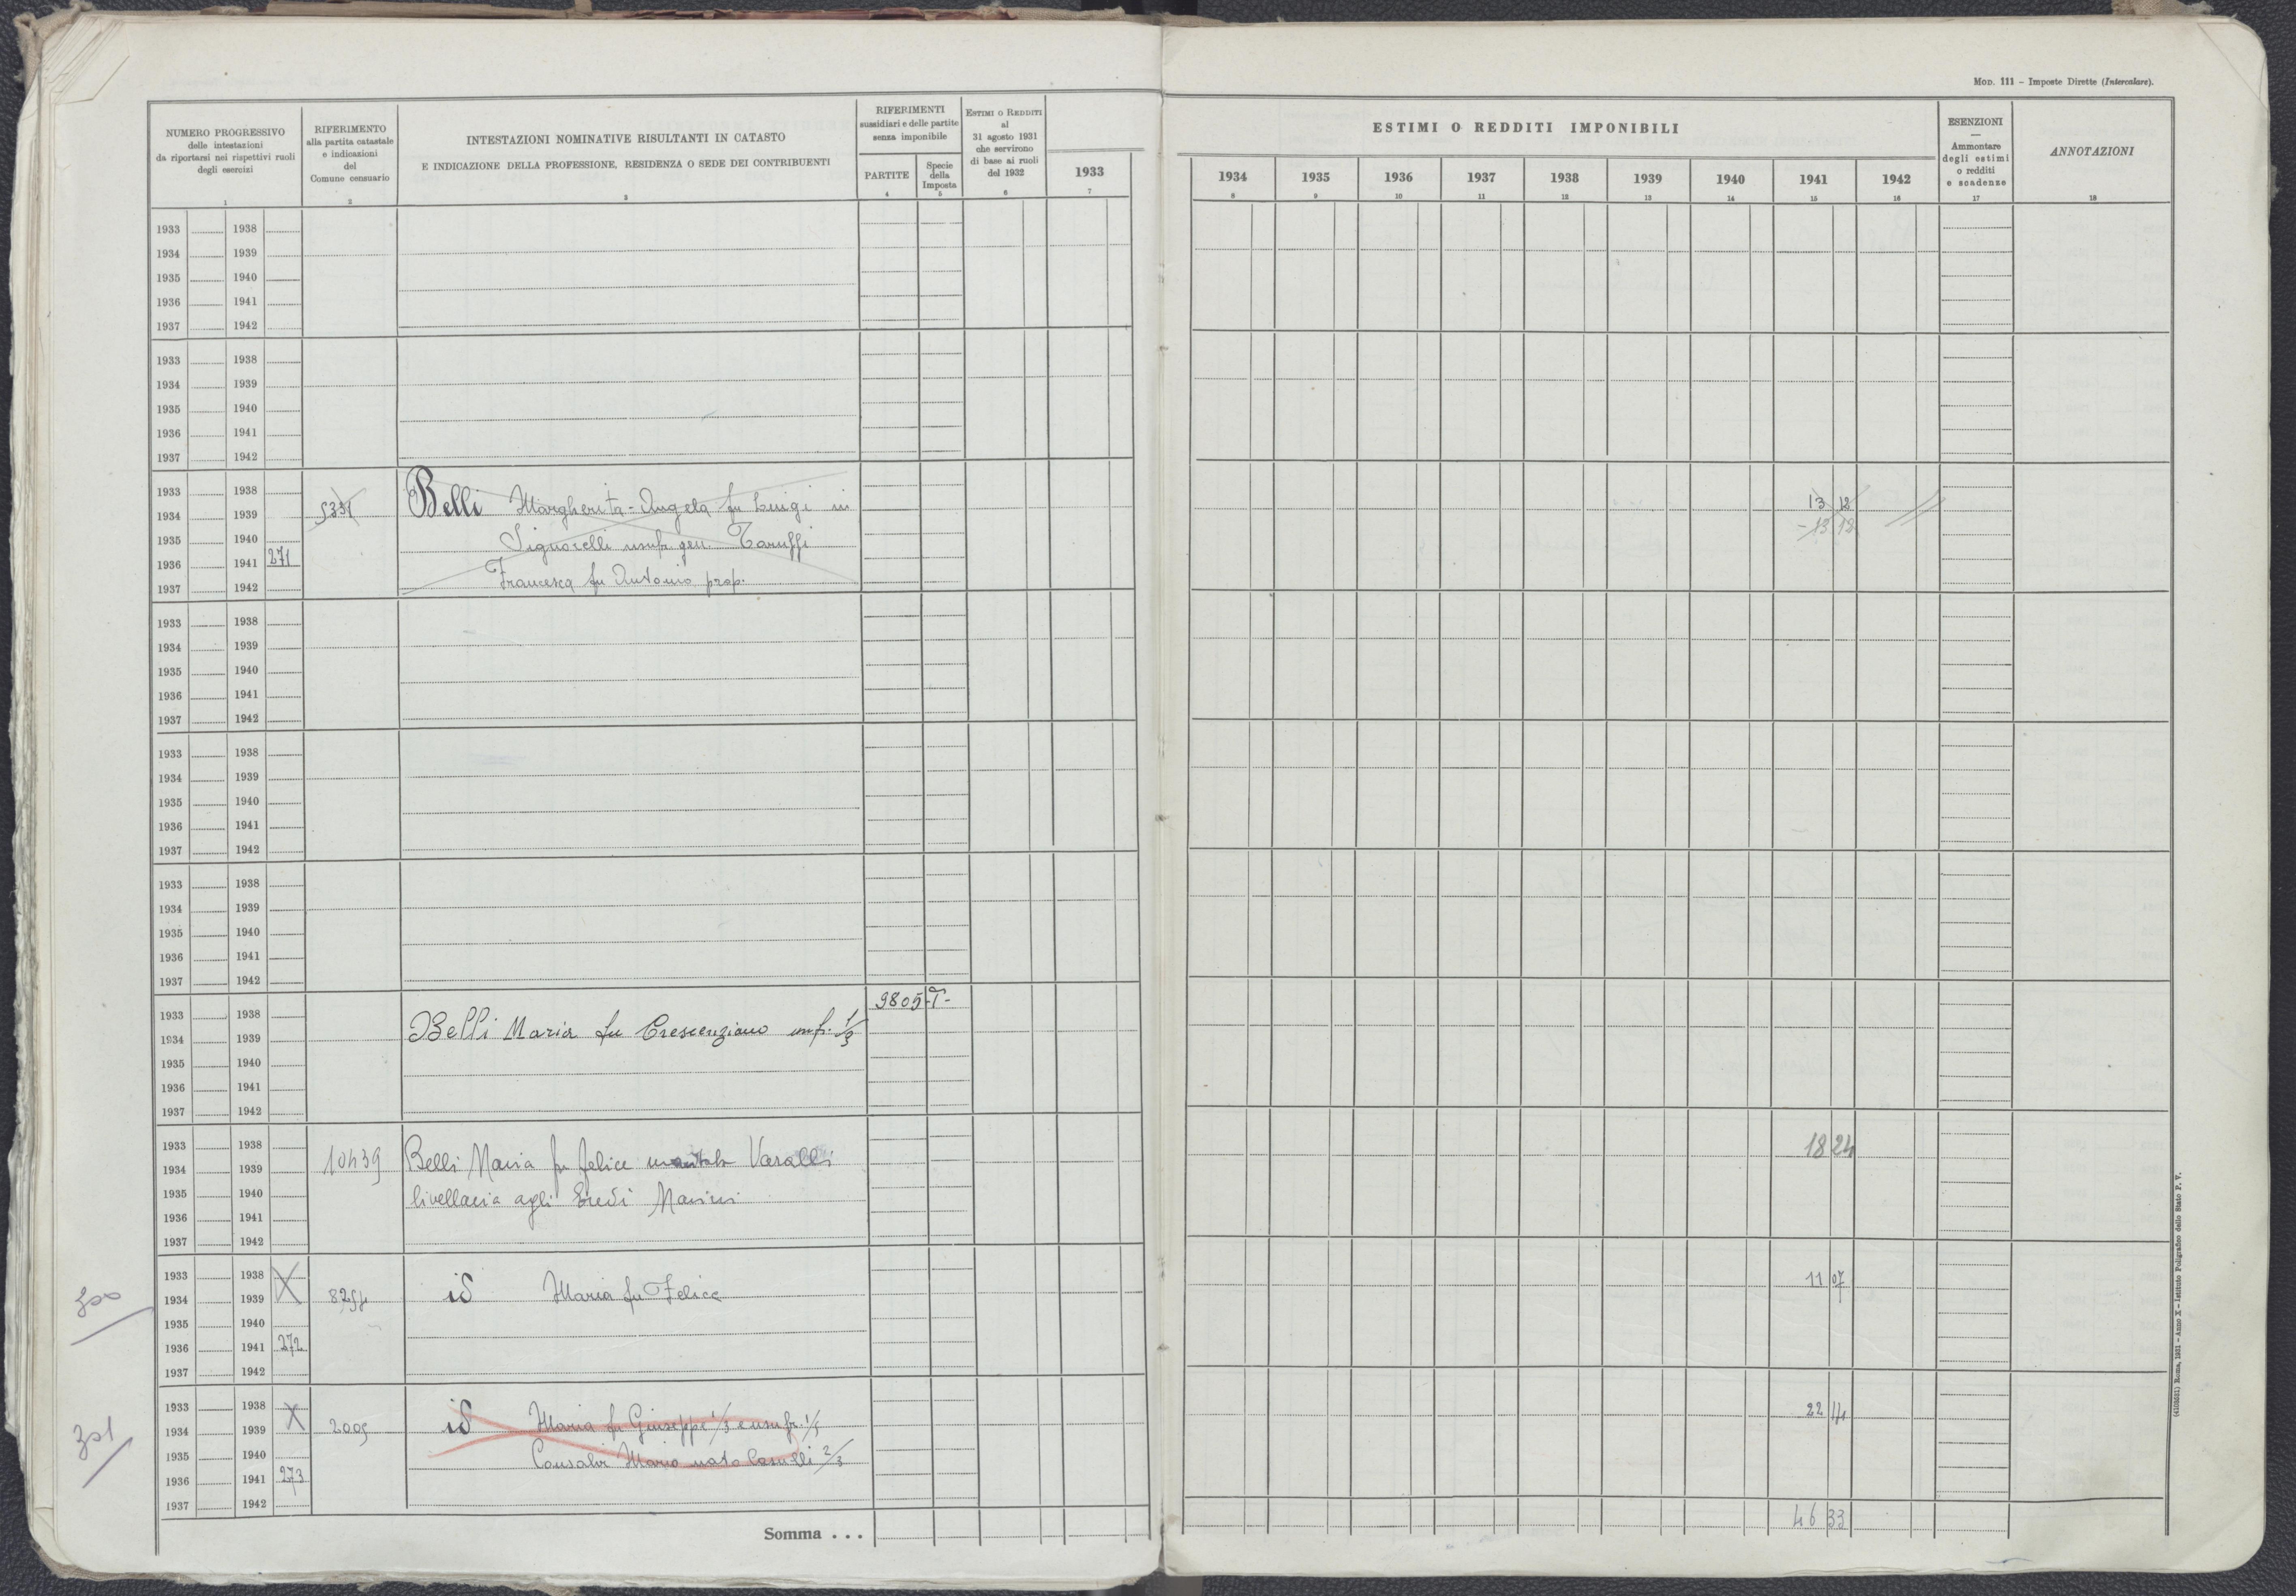 MOD. 111 – Imposte Dirette (Intercalare).
NUMERO PROGRESSIVO
delle intestazioni
da riportarsi nei rispettivi ruoli
degli esercizi
1
RIFERIMENTO
alla partita catastale
e indicazioni
del
Comune censuario
2
INTESTAZIONI NOMINATIVE RISULTANTI IN CATASTO
E INDICAZIONE DELLA PROFESSIONE, RESIDENZA O SEDE DEI CONTRIBUENTI
3
RIFERIMENTI
sussidiari e delle partite
senza imponibile
PARTITE
4
Specie
della
Imposta
5
ESTIMI O REDDITI
al
31 agosto 1931
che servirono
di base ai ruoli
del 1932
6
1933
7
ESTIMI O REDDITI IMPONIBILI
1934 1935 1936 1937 1938 1939 1940 1941 1942
8 9 10 11 12 13 14 15 16
ESENZIONI
—
Ammontare
degli estimi
o redditi
e scadenze
17
ANNOTAZIONI
18
1933 1938
1934 1939
1935 1940
1936 1941
1937 1942
1933 1938
1934 1939
1935 1940
1936 1941
1937 1942
1933 1938
1934 1939 5331 Belli Margherita-Angela fu Luigi in 13 12
1935 1940 Signorelli usufr. gen. Taruffi - 13 12
1936 1941 271
1937 1942 Francesca fu Antonio prop.
1933 1938
1934 1939
1935 1940
1936 1941
1937 1942
1933 1938
1934 1939
1935 1940
1936 1941
1937 1942
1933 1938
1934 1939
1935 1940
1936 1941
1937 1942
9805 -T-
1933 1938
1934 1939 Belli Maria fu Crescenziano usufr. 1/3
1935 1940
1936 1941
1937 1942
1933 1938 18 24
1934 1939 10439 Belli Maria fu Felice maritata Varalli
1935 1940 livellaria agli Eredi Marini
1936 1941
1937 1942
1933 1938 X 11 07
300 1934 1939 8294 id Maria fu Felice
1935 1940
1936 1941 272
1937 1942
1933 1938 X 22 14
301 1934 1939 2009 id Maria fu Giuseppe 1/3 e usufr. 1/3
1935 1940 Consalvi Mario nato 2/3
1936 1941 273
1937 1942
Somma . . . 46 33
(4103531) Roma, 1931 – Anno X – Istituto Poligrafico dello Stato P. V.